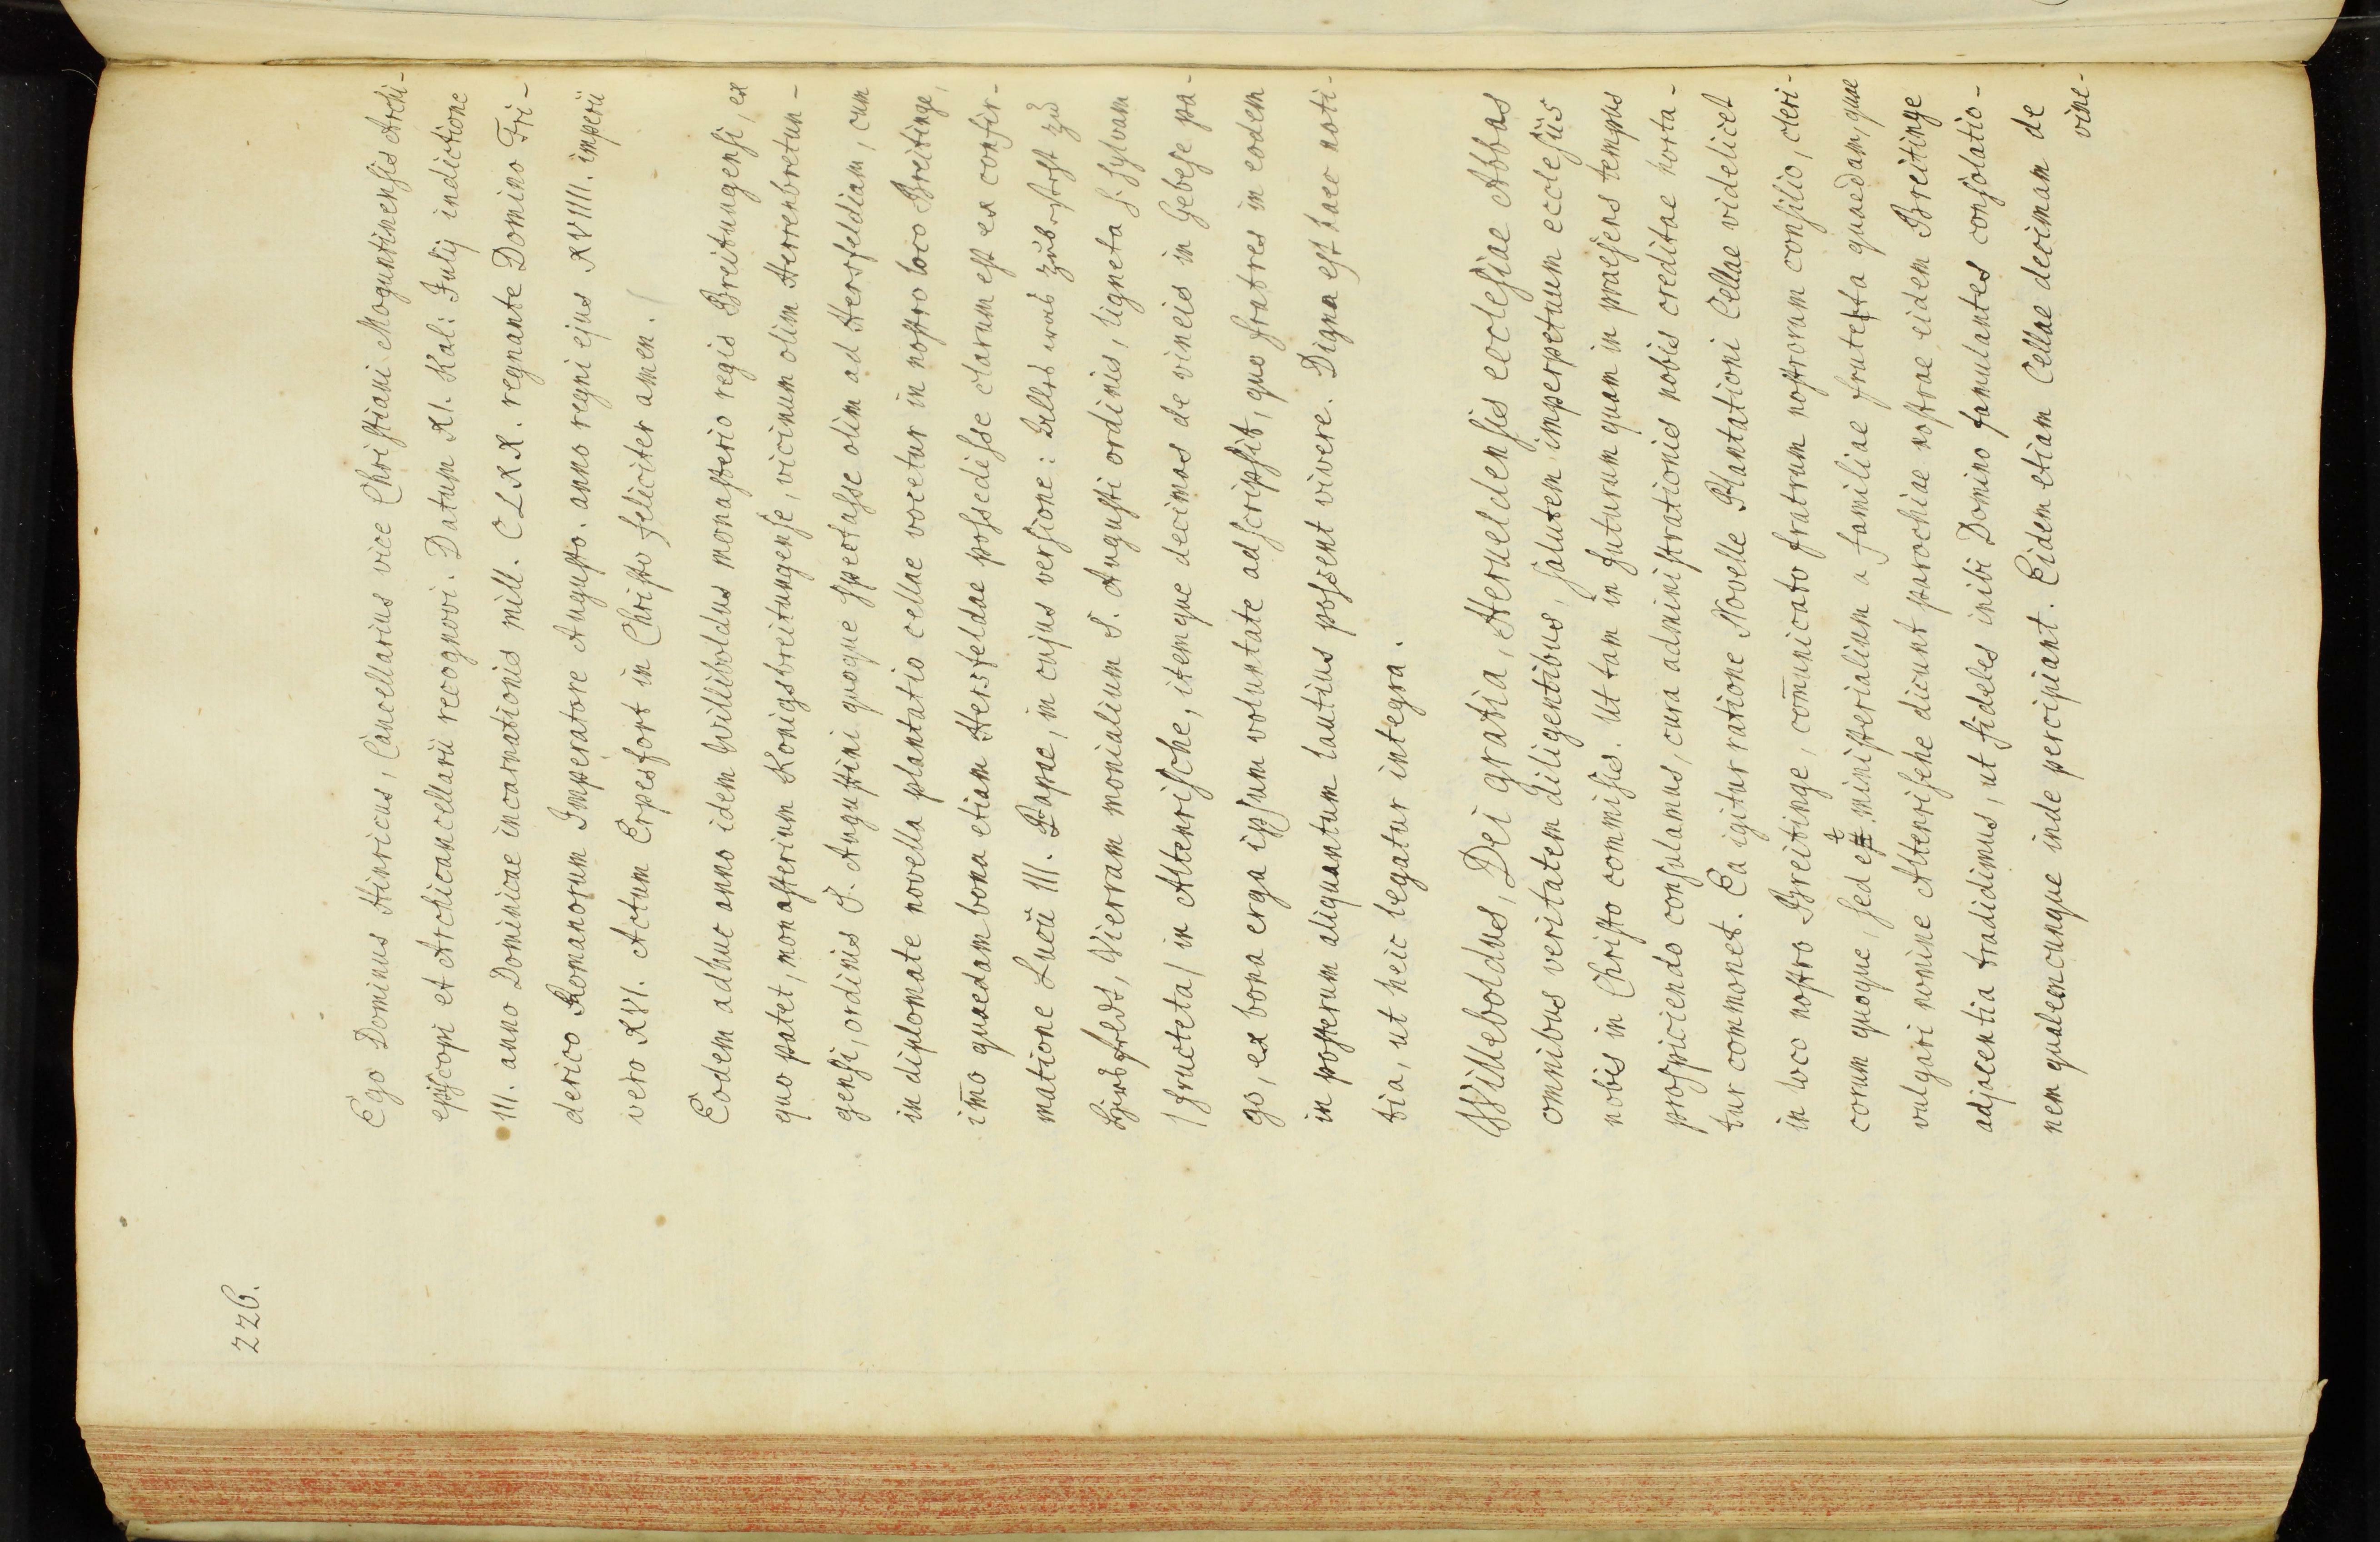 226.
Ego Dominus Hinricus, Cancellarius vice Christiani Moguntinensis Archi-
episcopi et Archicancellarii recognovi. Datum XI. Kal: Julij indictione
III. anno Dominicae incarnationis mill. CLXX. regnante Domino Fri-
derico Romanorum Imperatore Augusto. anno regni ejus XVIIII. imperii
vero XVI. Actum Erpesfort in Christo feliciter amen. /
Eodem adhuc anno idem Williboldus monasterio regis Breitungensi, ex
quo patet, monasterium Konigsbreitungense, vicinum olim Herrenbretun-
gensi, ordinis S. Augustini quoque spectasse olim ad Hersfeldiam, cum
in diplomate novella plantatio cellae vocetur in nostro loco Breitinge,
im̄o quaedam bona etiam Hersfeldae possedisse clarum est ex confir-
matione Lucii III. Papae, in cujus versione: alles was zuborst zu
Hirsfeldt, Vierram monialium S. Augusti ordinis, ligneta s. sylvam
/ fructeta / in Altenrische, itemque decimas de vineis in Gebese pa-
go, ex bona erga ipsum voluntate adscripsit, quo fratres in eodem
in posterum aliquantum lautius possent vivere. Digna est haec noti-
tia, ut heic legatur integra.
Willeboldus, Dei gratia, Herueldensis ecclesiae Abbas
omnibus veritatem diligentibus, salutem imperpetuum ecclesiis
nobis in Christo commissis. Ut tam in futurum quam in praesens tempus
prospiciendo consulamus, cura administrationis nobis creditae horta-
tur commonet. Ea igitur ratione Novelle Plantationi Cellae videlicet
in loco nostro Breitinge, com̄unicato fratrum nostrorum consilio, cleri-
corum quoque, sed et ministerialium a familiae fruteta quaedam, quae
vulgari nomine Altenrisehe dicunt parochiae nostrae eidem Breitinge
adjacentia tradidimus, ut fideles inibi Domino famulantes consolatio-
nem qualemcunque inde percipiant. Eidem etiam Cellae decimam de
vine-